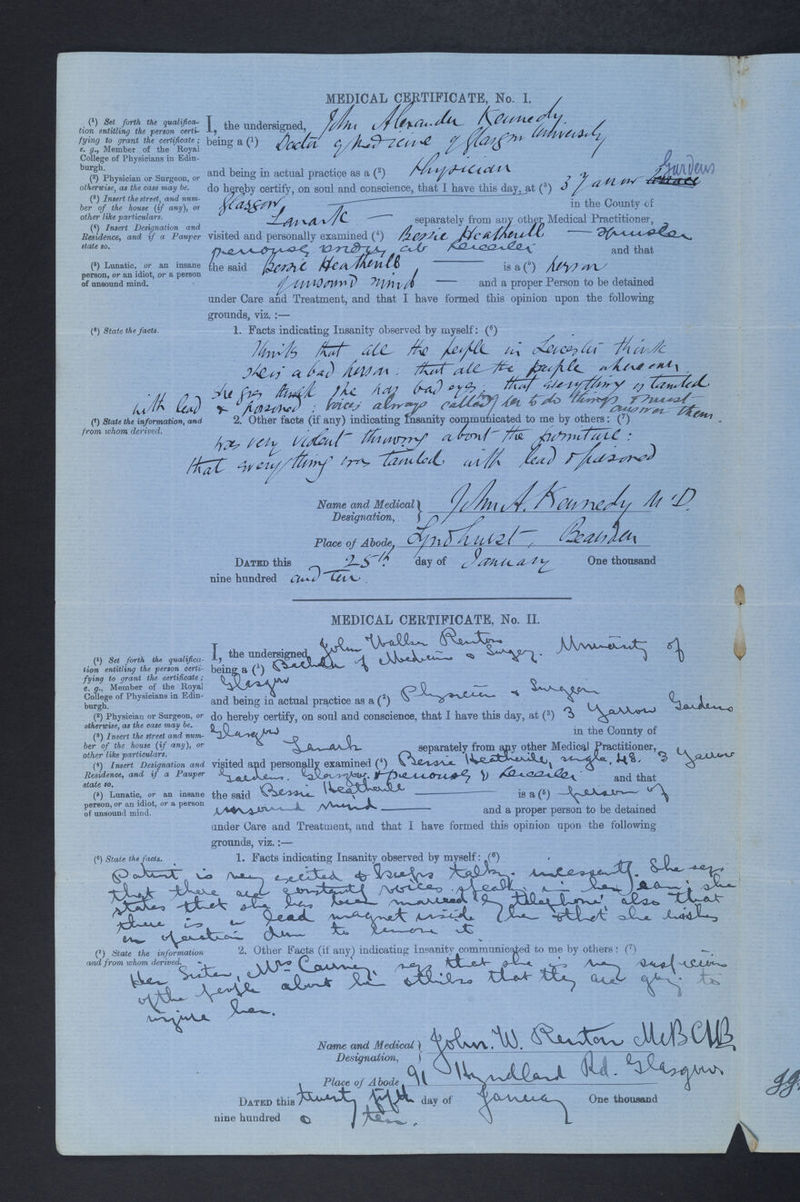 MEDICAL CERTIFICATE, No. I.
(¹) Set forth the qualifica-
tion entitling the person certi-
fying to grant the certificate;
e. g., Member of the Royal
College of Physicians in Edin-
burgh.
(²) Physician or Surgeon, or
otherwise, as the case may be.
(³) Insert the street, and num-
ber of the house (if any), or
other like particulars.
(⁴) Insert Designation and
Residence, and if a Pauper
state so.
(⁵) Lunatic, or an insane
person, or an idiot, or a person
of unsound mind.
I, the undersigned, John Alexander Kennedy.
being a (¹) Doctor of Medicine of Glasgow University
and being in actual practice as a (²) Physician
do hereby certify, on soul and conscience, that I have this day, at (³) 3 Yarrow Terrace Gardens
Glasgow in the County of
Lanark — separately from any other Medical Practitioner,
visited and personally examined (⁴) Bessie Heatherill — Spinster
previously at Leicester and that
the said Bessie Heatherill — is a (⁵) person
of unsound mind — and a proper Person to be detained
under Care and Treatment, and that I have formed this opinion upon the following
grounds, viz. :—
(⁶) State the facts.
1. Facts indicating Insanity observed by myself: (⁶)
Thinks that all the people in Leicester think
she is a bad person. that all the people where ever
she goes think she has bad eyes. that everything is tainted
with lead & poisoned : voices always calling her to do things & must
answer them.
(⁷) State the information, and
from whom derived.
2. Other facts (if any) indicating Insanity communicated to me by others: (⁷)
was very violent throwing about the furniture :
that everything was tainted with lead & poisoned
Name and Medical Designation, John A. Kennedy M.D.
Place of Abode, Lyndhurst, Bearsden
DATED this 25th day of January One thousand
nine hundred and ten.
MEDICAL CERTIFICATE, No. II.
(¹) Set forth the qualifica-
tion entitling the person certi-
fying to grant the certificate;
e. g., Member of the Royal
College of Physicians in Edin-
burgh.
(²) Physician or Surgeon, or
otherwise, as the case may be.
(³) Insert the street and num-
ber of the house (if any), or
other like particulars.
(⁴) Insert Designation and
Residence, and if a Pauper
state so.
(⁵) Lunatic, or an insane
person, or an idiot, or a person
of unsound mind.
I, the undersigned, John Walker Renton
being a (¹) Bachelor of Medicine & Surgery. University of
Glasgow
and being in actual practice as a (²) Physician & Surgeon
do hereby certify, on soul and conscience, that I have this day, at (³) 3 Yarrow Gardens
Glasgow in the County of
Lanark separately from any other Medical Practitioner,
visited and personally examined (⁴) Bessie Heatherill, single, 48. 3 Yarrow
Gardens. Glasgow. & previously of Leicester and that
the said Bessie Heatherill — is a (⁵) person of
unsound mind — and a proper person to be detained
under Care and Treatment, and that I have formed this opinion upon the following
grounds, viz. :—
(⁶) State the facts.
1. Facts indicating Insanity observed by myself: (⁶)
Patient is very excited & keeps talking incessantly. She says
that there are constantly voices speaking in her ear; she
states that she has been married by telephone also that
there is a lead magnet inside her & that she wishes
an operation done to remove it
(⁷) State the information
and from whom derived.
2. Other Facts (if any) indicating Insanity communicated to me by others: (⁷)
Her Sister, Mrs says that she is very suspicious
of the people about her & thinks that they are going to
injure her.
Name and Medical Designation, John. W. Renton MB ChB.
Place of Abode 91 Hyndland Rd. Glasgow
DATED this twenty fifth day of January One thousand
nine hundred & ten.